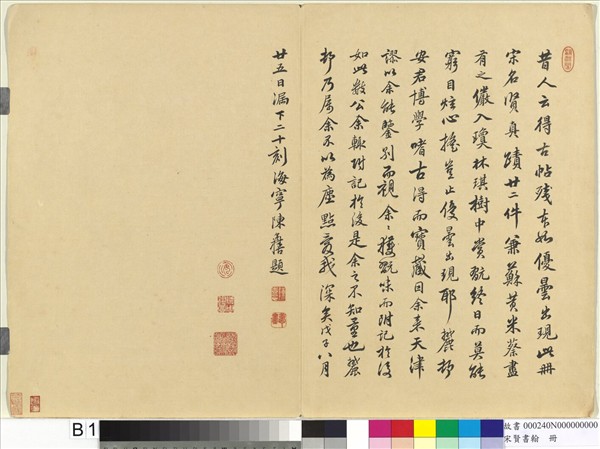 昔人云得古帖殘本如優曇出現此冊
宋名賢真蹟廿二件兼蘇黃米蔡盡
有之儼入瓊林琪樹中賞翫終日而莫能
窮目炫心搖豈止優曇出現耶麓邨
安君博學嗜古得而寶藏因余來天津
謬以余能鑒別而視余余獲翫味而附記於後
如此數公余輒附記於後是余之不知量也麓
邨乃屬余不以為塵點愛我深矣戊子八月
廿五日漏下二十刻海寧陳奕禧題
B 1
故書 000240N000000000
宋賢書翰 冊